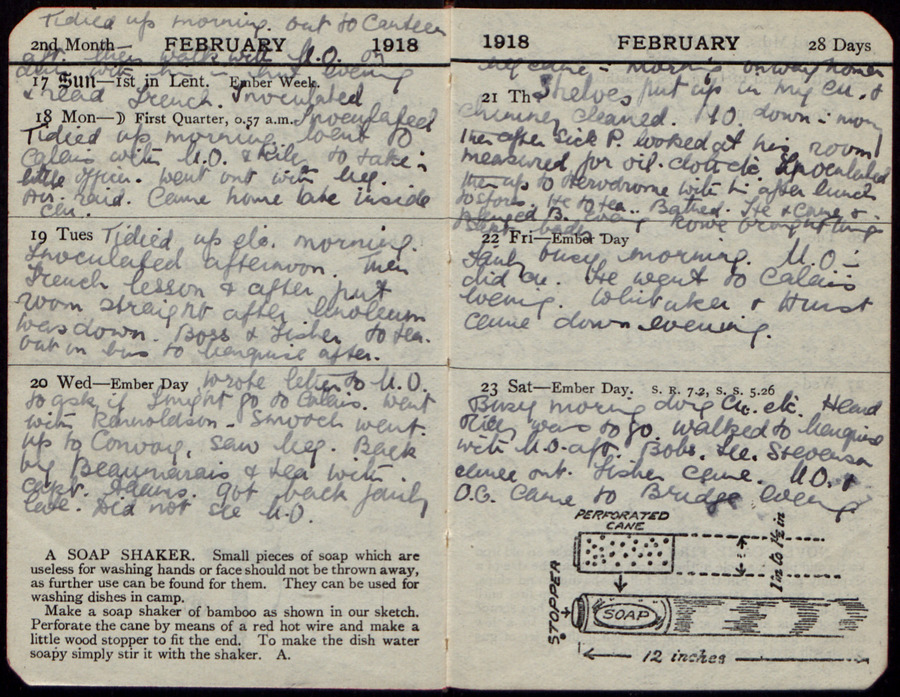 Tidied up morning. out to Canteen
2nd Month— FEBRUARY 1918
aft. then walk with M.O. on
evening
17 Sun—1st in Lent. Ember Week.
& read French. Inoculated
18 Mon—☽ First Quarter, 0.57 a.m. Inoculated
Tidied up morning. went to
Calais with M.O. & to take
little officer. Went out with Meg.
Air raid. Came home late inside
Car.
19 Tues Tidied up etc. morning.
Inoculated afternoon. Then
French lesson & after put
room straight after linoleum
was down. Boss & Fisher to tea.
out in bus to Marquise after.
20 Wed—Ember Day Wrote letter to M.O.
to ask if I might go to Calais. Went
with Rannoldson. Smooch went.
up to Convoy, saw Meg. Back
by Beaumarais & tea with
Capt. Adams. got back fairly
late. Did not see M.O.
A SOAP SHAKER. Small pieces of soap which are
useless for washing hands or face should not be thrown away,
as further use can be found for them. They can be used for
washing dishes in camp.
Make a soap shaker of bamboo as shown in our sketch.
Perforate the cane by means of a red hot wire and make a
little wood stopper to fit the end. To make the dish water
soapy simply stir it with the shaker. A.
1918 FEBRUARY 28 Days
on way home
21 Th Shelves put up in my Cu. &
chimney cleaned. down
then after Sick P. looked at his room
measured for oil cloth etc. Inoculated
then up to Aerodrome with after lunch
to stores. He to tea. Bathed. He & came
B. Rowe brought
22 Fri—Ember Day
Fairly busy morning. M.O.
did Cu. He went to Calais
evening. Whitaker & Hurst
came down evening.
23 Sat—Ember Day. S. R. 7.2, S. S. 5.26
Busy morning doing Cu. etc. Heard
was to go. Walked to Marquise
with M.O. aft. Bobs. Lee. Stevenson
came out. Fisher came. M.O. &
O.C. came to Bridge evening
PERFORATED
CANE
1 in to 1½ in
STOPPER
SOAP
12 inches